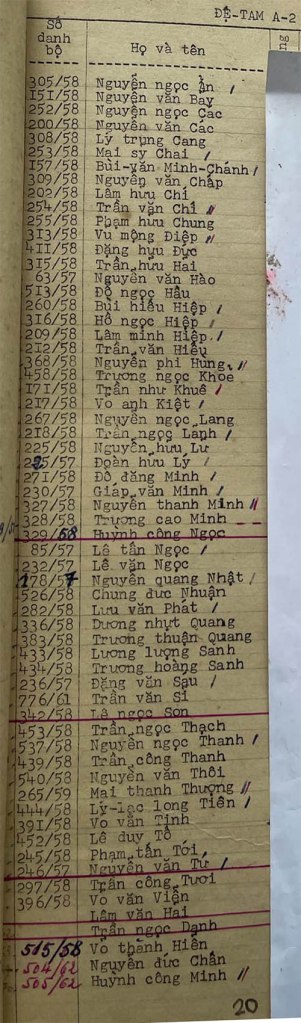 ĐỆ-TAM A-2
Số
danh
bộ
Họ và tên
305/58 Nguyễn ngọc Ẩn /
151/58 Nguyễn văn Bay
252/58 Nguyễn ngọc Các
200/58 Nguyễn văn Các
308/58 Lý trung Cang
253/58 Mai sy Chai /
157/58 Bùi-văn Minh-Chánh /
309/58 Nguyễn văn Chấp
202/58 Lâm hưu Chí
254/58 Trần văn Chí //
255/58 Phạm hưu Chung
313/58 Vu mộng Điệp //
411/58 Đặng hưu Đực
315/58 Trần hưu Hai
63/57 Nguyễn văn Hào
513/58 Đỗ ngọc Hầu
260/58 Bùi hiếu Hiệp /
316/58 Hồ ngọc Hiệp /
209/58 Lâm minh Hiệp /
212/58 Trần văn Hiếu
368/58 Nguyễn phi Hùng //
458/58 Trương ngọc Khoe
171/58 Trần như Khuê /
217/58 Vo anh Kiệt /
267/58 Nguyễn ngọc Lang
218/58 Trần ngọc Lanh /
225/58 Nguyễn hưu Lư
225/57 Đoàn hưu Lý /
271/58 Đỗ đăng Minh /
230/57 Giáp văn Minh /
327/58 Nguyễn thanh Minh //
328/58 Trương cao Minh
329/58 Huỳnh công Ngọc
85/57 Lê tấn Ngọc /
232/57 Lê văn Ngọc
178/57 Nguyễn quang Nhật /
526/58 Chung đưc Nhuận
282/58 Lưu văn Phát /
336/58 Dương nhựt Quang
383/58 Trương thuận Quang
433/58 Lương lượng Sanh
434/58 Trương hoàng Sanh
236/57 Đặng văn Sau /
776/61 Trần văn Si
342/58 Lê ngọc Sơn
453/58 Trần ngọc Thạch
537/58 Nguyễn ngọc Thanh /
439/58 Trần công Thanh
540/58 Nguyễn văn Thôi
265/59 Mai thanh Thượng //
444/58 Lý-lạc long Tiên /
391/58 Vo văn Tịnh
452/58 Lê duy Tố
245/58 Phạm tấn Tới
246/57 Nguyễn văn Tư /
297/58 Trần công Tươi
396/58 Vo văn Viện
Lâm văn Hai
Trần ngọc Danh
515/58 Vo thành Hiển
504/62 Nguyễn đức Chấn
505/62 Huỳnh công Minh //
20